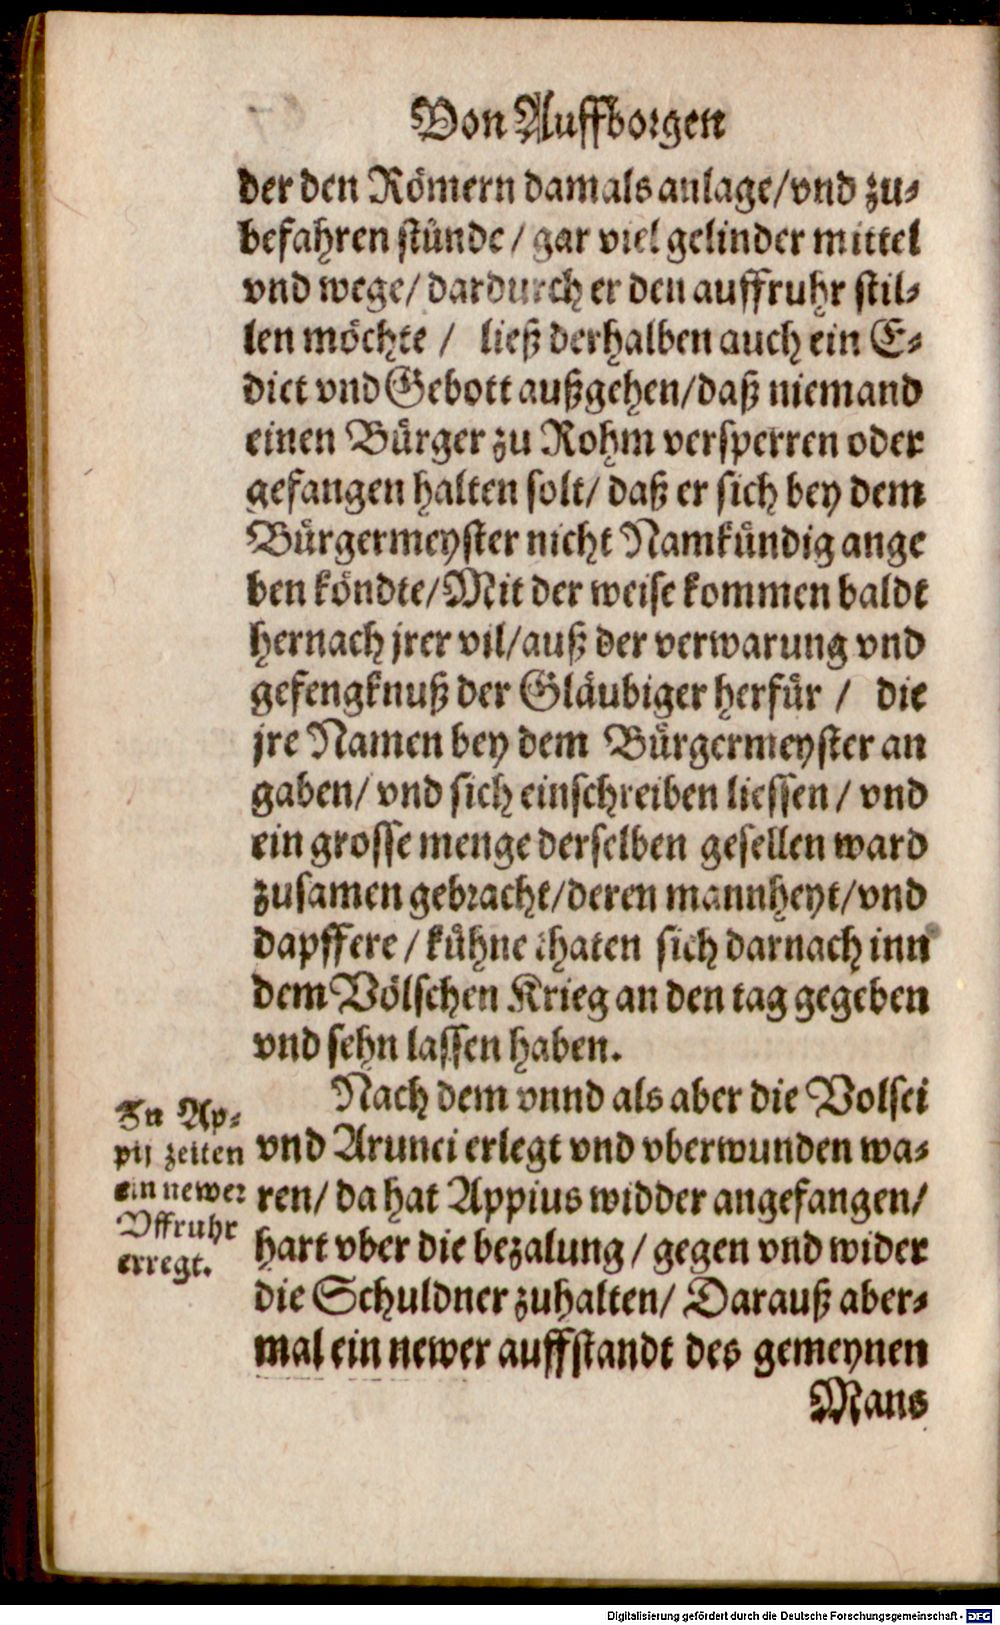 Von Auffborgen
der den Römern damals anlage/vnd zu-
befahren stünde / gar viel gelinder mittel
vnd wege/ dardurch er den auffruhr stil-
len möchte / ließ derhalben auch ein E-
dict vnd Gebott außgehen/daß niemand
einen Bürger zu Rohm versperren oder
gefangen halten solt/ daß er sich bey dem
Bürgermeyster nicht Namkündig ange
ben köndte/Mit der weise kommen baldt
hernach jrer vil/auß der verwarung vnd
gefengknuß der Gläubiger herfür / die
jre Namen bey dem Bürgermeyster an
gaben/ vnd sich einschreiben liessen / vnd
ein grosse menge derselben gesellen ward
zusamen gebracht/deren mannheyt/vnd
dapffere / kühne thaten sich darnach inn
dem Völschen Krieg an den tag gegeben
vnd sehn lassen haben.
Nach dem vnnd als aber die Volsci
vnd Arunci erlegt vnd vberwunden wa-
ren/ da hat Appius widder angefangen/
hart vber die bezalung / gegen vnd wider
die Schuldner zuhalten/ Darauß aber-
mal ein newer auffstandt des gemeynen
Mans
In Ap-
pij zeiten
ein newer
Vffruhr
erregt.
Digitalisierung gefördert durch die Deutsche Forschungsgemeinschaft - DFG